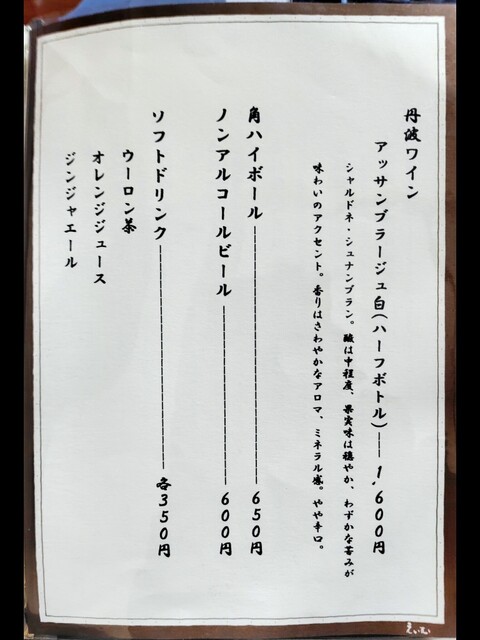 丹波ワイン
アッサンブラージュ白(ハーフボトル)――1,600円
シャルドネ・シュナンブラン。酸は中程度、果実味は穏やか、わずかな苦みが
味わいのアクセント。香りはさわやかなアロマ、ミネラル感。やや辛口。
角ハイボール――――――――650円
ノンアルコールビール――――――600円
ソフトドリンク――――――――各350円
ウーロン茶
オレンジジュース
ジンジャエール